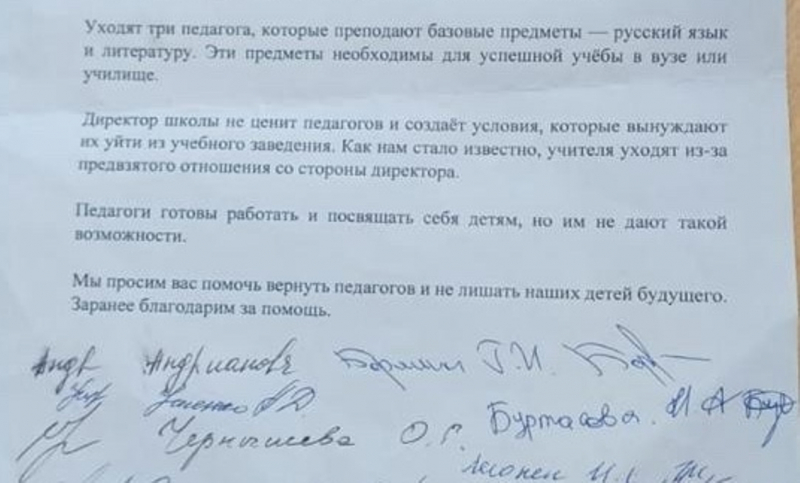 Уходят три педагога, которые преподают базовые предметы — русский язык
и литературу. Эти предметы необходимы для успешной учёбы в вузе или
училище.
Директор школы не ценит педагогов и создаёт условия, которые вынуждают
их уйти из учебного заведения. Как нам стало известно, учителя уходят из-за
предвзятого отношения со стороны директора.
Педагоги готовы работать и посвящать себя детям, но им не дают такой
возможности.
Мы просим вас помочь вернуть педагогов и не лишать наших детей будущего.
Заранее благодарим за помощь.
Андр Андрианова Г.И.
Чернышева О.Г. Буртасова И А